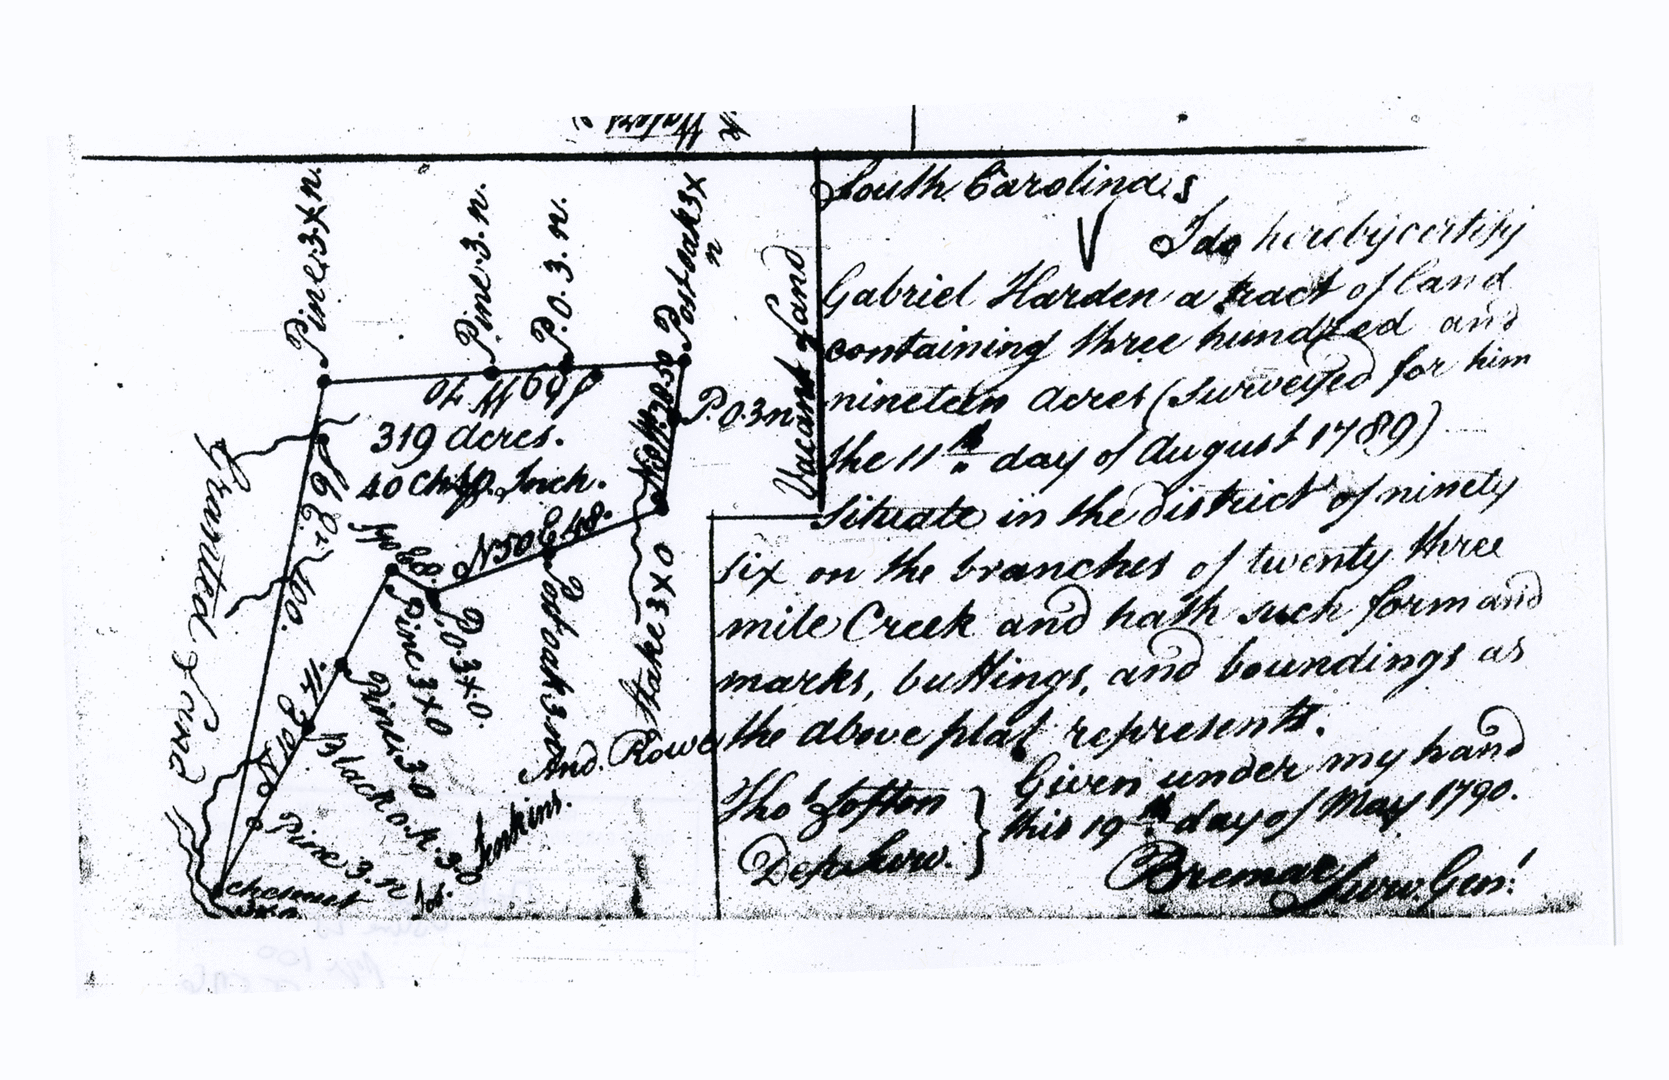 Waters
South Carolina
I do hereby certify
Gabriel Harden a tract of land
containing three hundred and
nineteen acres (surveyed for him
the 11th day of August 1789)
situate in the district of ninety
six on the branches of twenty three
mile Creek and hath such form and
marks, buttings, and boundings as
the above plat represents.
Given under my hand
this 19th day of May 1790.
Thos Lofton
Dep. Surv.
Bremar Surv. Genl
Pine 3 x n.
Pine 3. n.
P.O. 3. n.
Post oak 3 x
n
Vacant Land
P.O. 3 n
319 acres.
40 Chs Inch.
Granted Land
100.
N 50 E 48.
Stake 3 x 0
Post oak 3 n
P.O. 3 x 0.
Pine 3 x 0
Pine 30
Black o.k. 3
Pine 3. n
chesnut
And. Rowe
Jenkins.